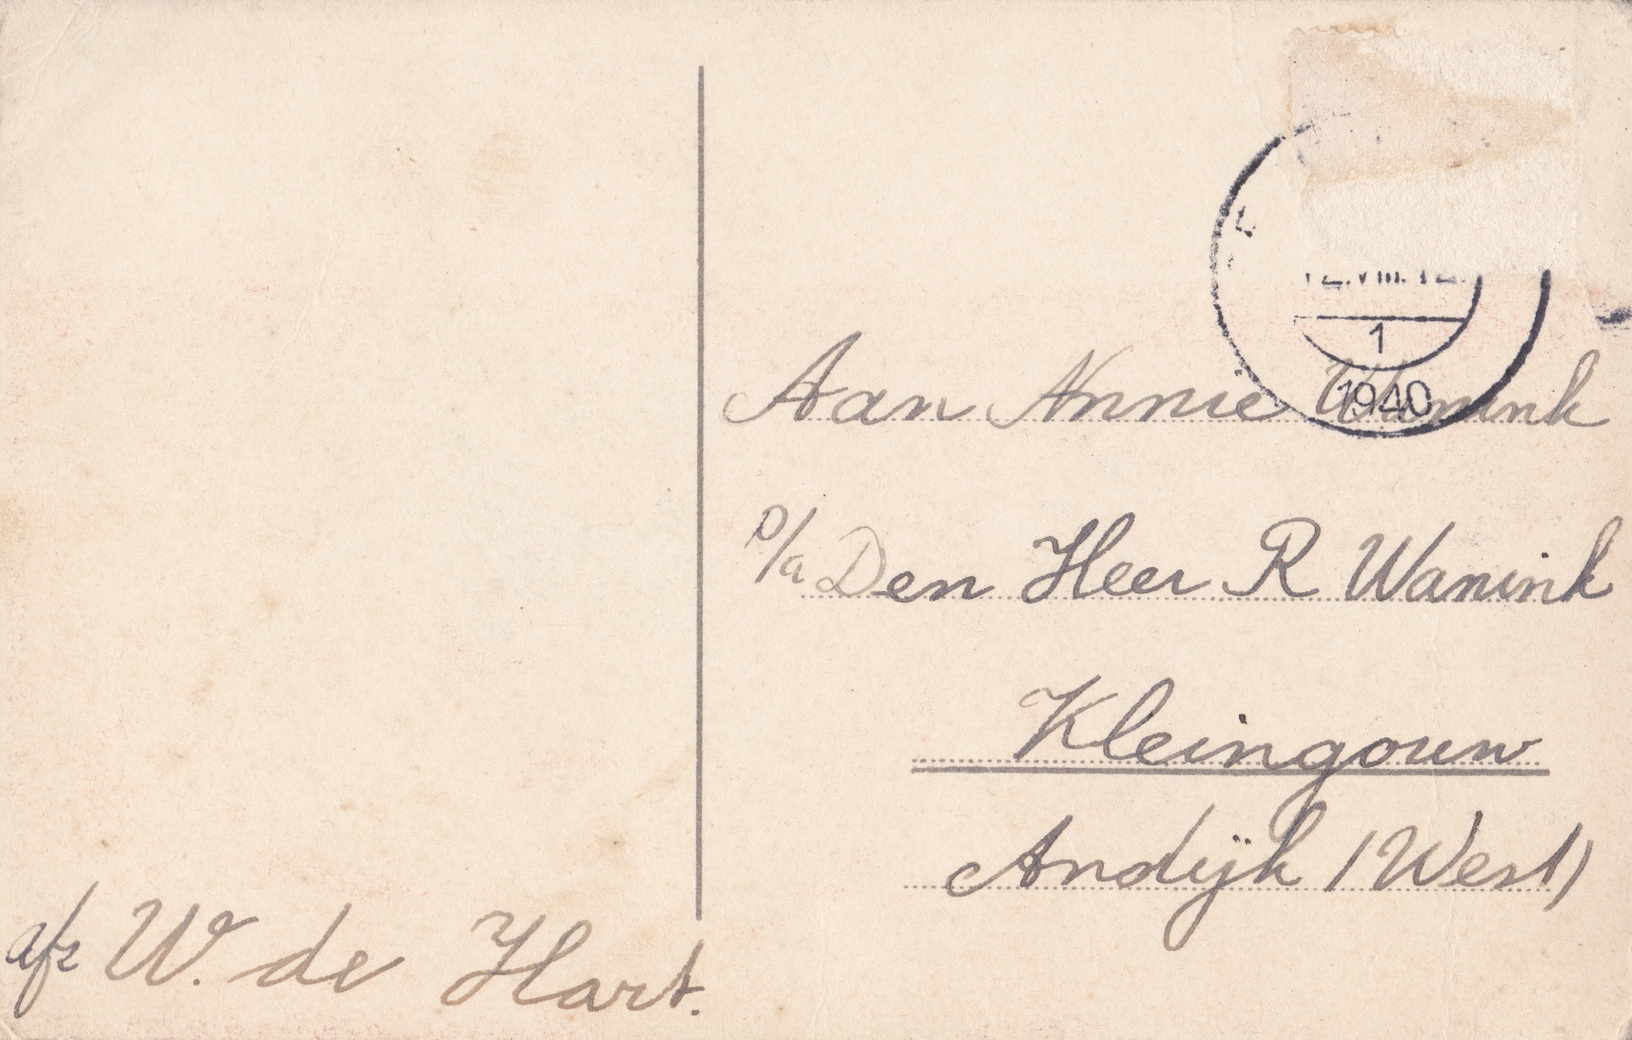 1
1940
Aan Annie Wanink
p/a Den Heer R Wanink
Kleingouw
Andijk (West)
afz W. de Hart.